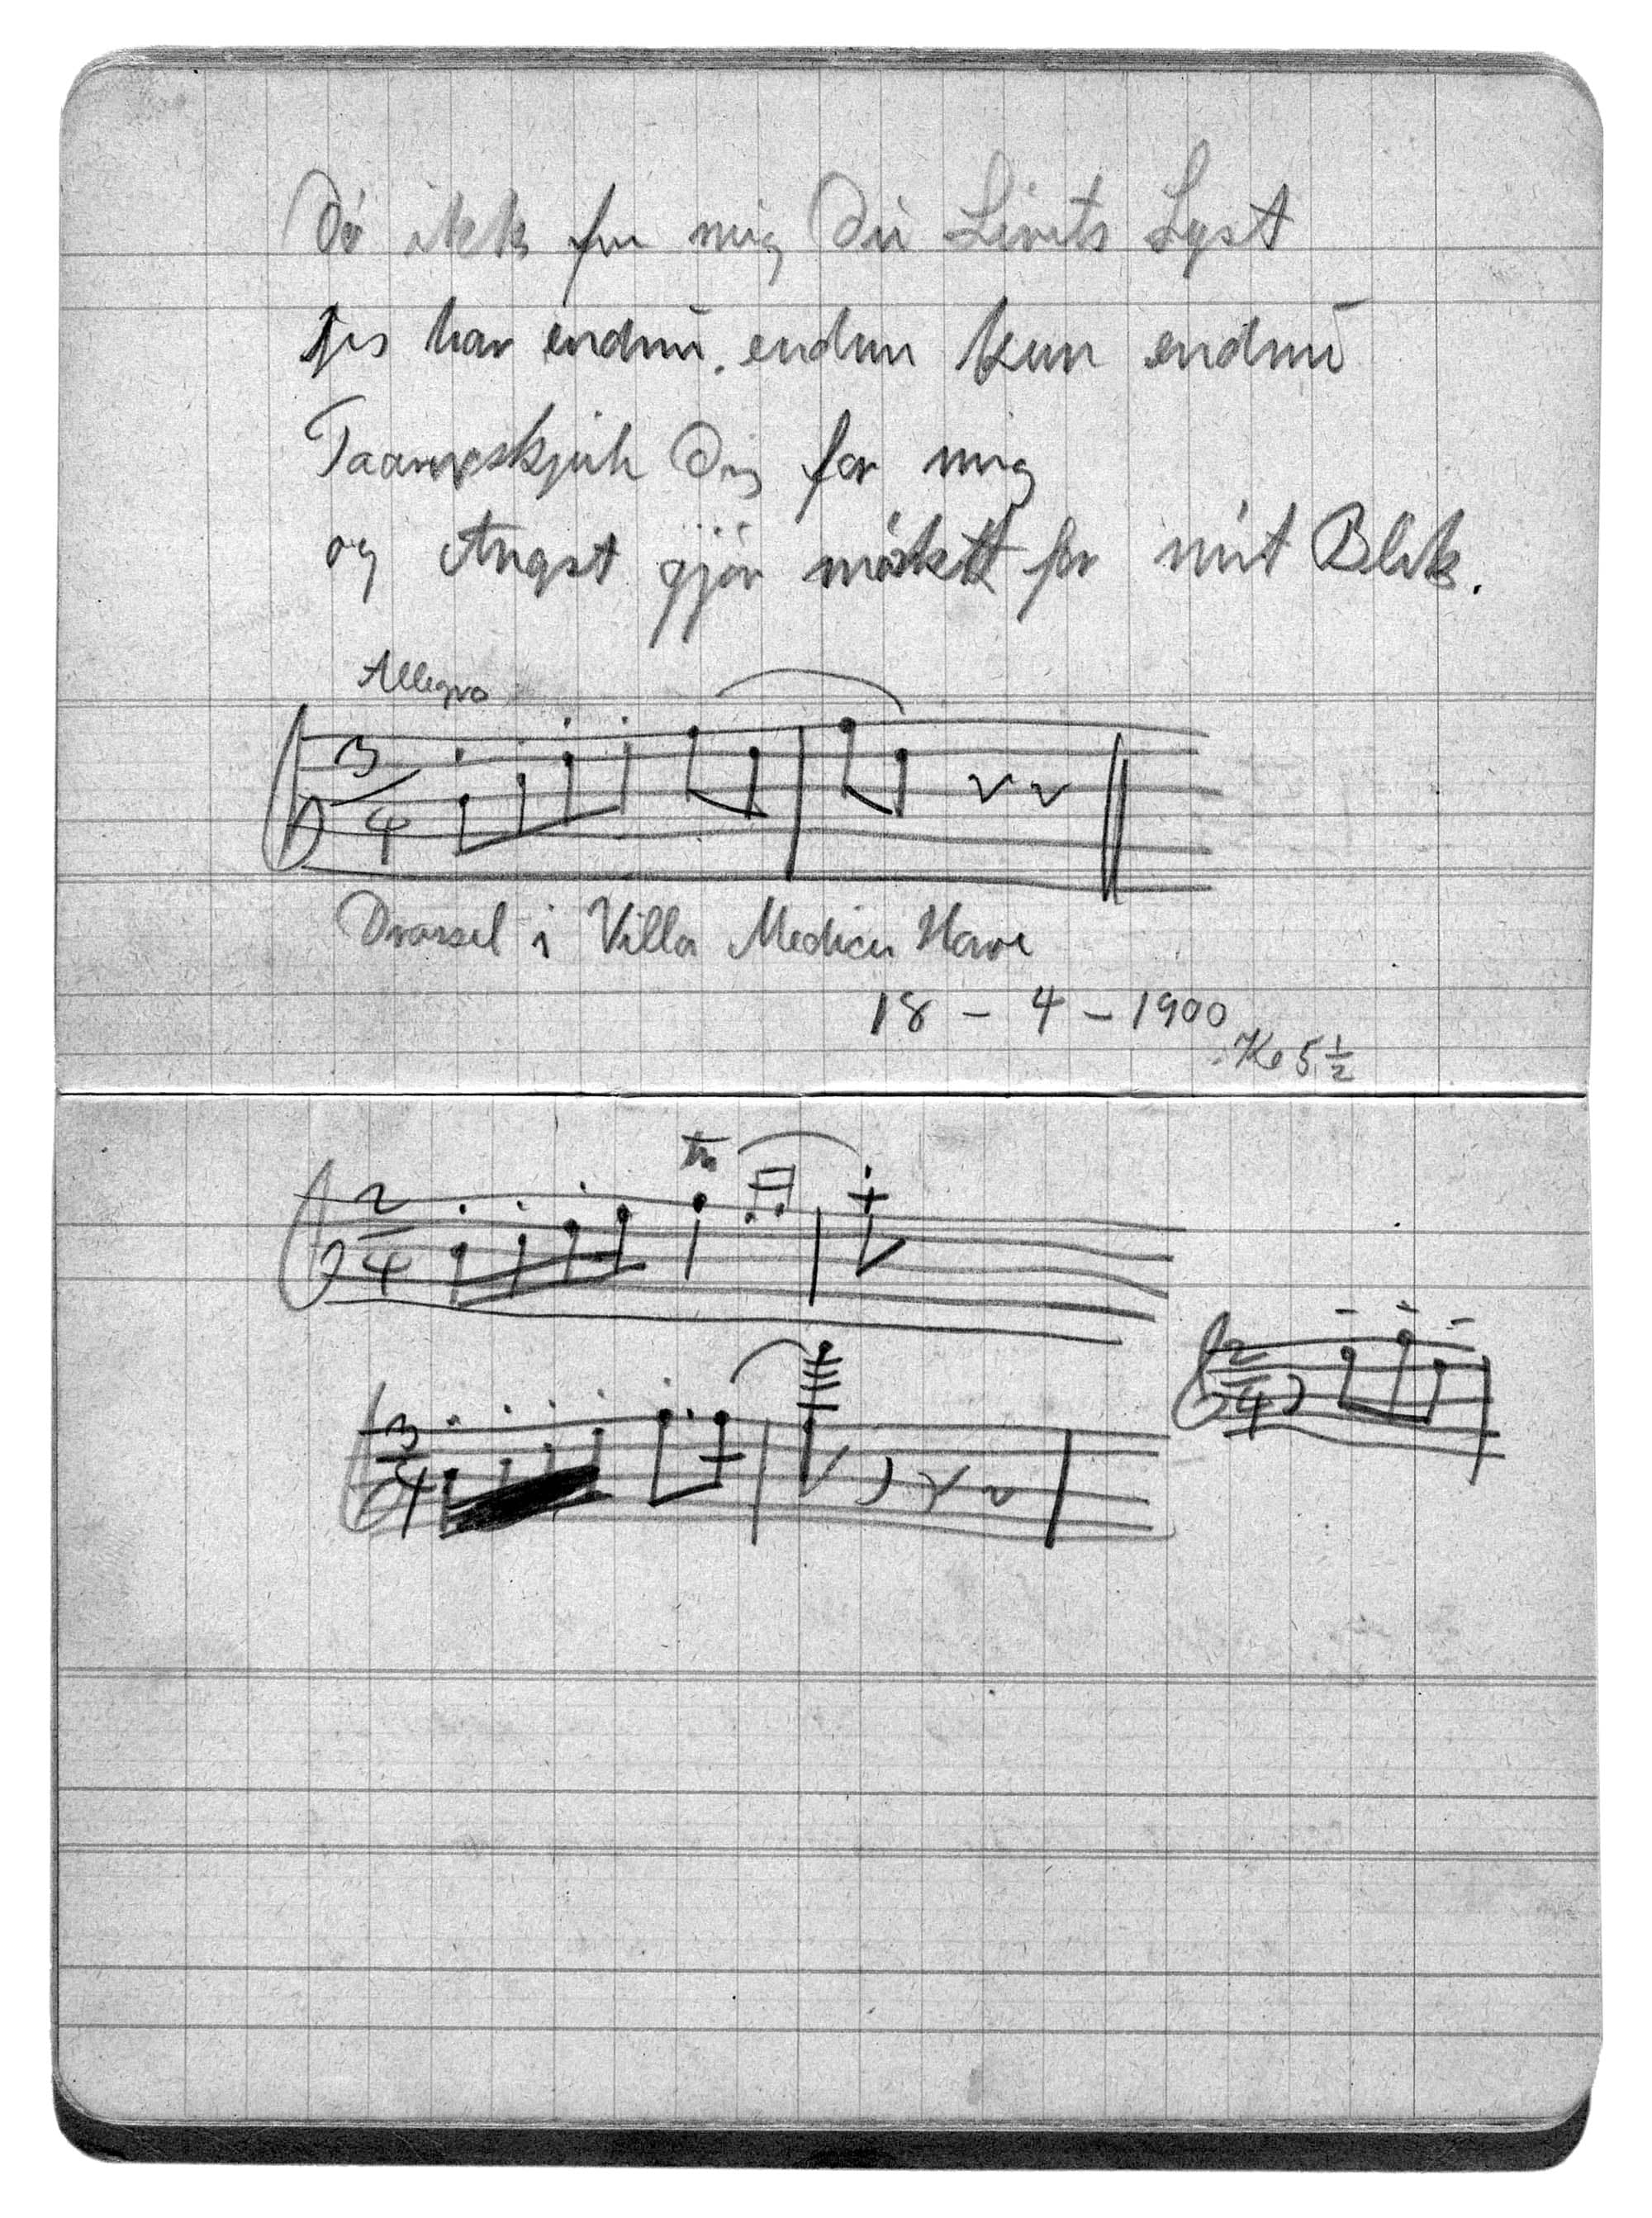 Dö ikke for mig Du Livets Lyst
Jeg har endnu. endnu kun endnu
Taarer skjule Dig for mig
og Angst gjör mörkt for mit Blik.
Allegro
3
4
Drossel i Villa Medicis Have
18 - 4 - 1900
Kl 5 1/2
tr
2
4
2
4
3
4